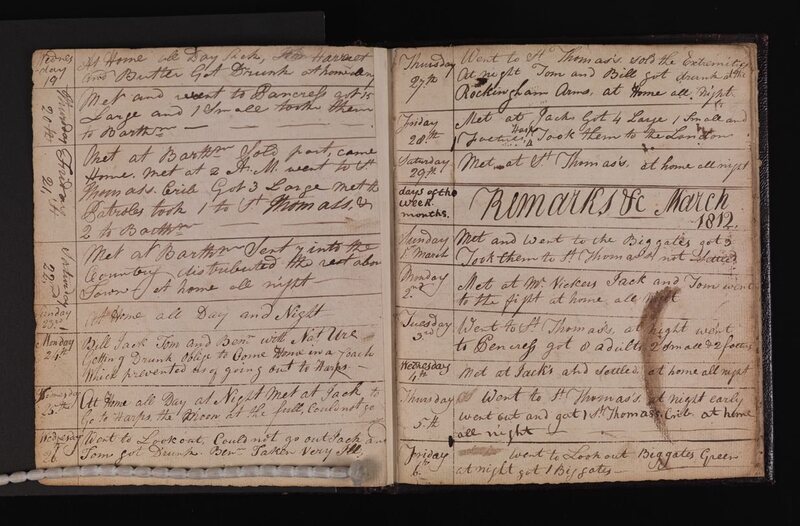 Wednes
day
19
At Home all Day Sick,
and Butler Got Drunk at home
Thursday 20th
Met and went to Pancress got 15
Large and 1 Small took them
to Barthw
Friday 21st
Met at Barthw Sold part, came
Home. Met at 2 A.M. went to St
Thomass. Crib Got 3 Large Met the
Patroles took 1 to St Thomass, &
2 to Barthw
Saturday 22
Met at Barthw Sent 7 into the
Country distributed the rest about
Town at home all night
Sunday
23rd
At Home all Day and Night
Monday
24th
Bill Jack Tom and Benn with Nat Ure
Getting Drunk Oblige to Come Home in a Coach
Which prevented us going out to Harps
25th
At Home all Day at Night Met at Jack to
Go to Harps the Moon at the full, Could not go
Wednesday
26
Went to Look out. Could not go out Jack and
Tom got Drunk. Benn Taken Very Ill,
Thursday
27th
Went to St Thomas's sold the Extremities
At night Tom and Bill got drunk at the
Rockingham Arms, at home all Night
Friday
28th
Met at Jack Got 4 Large 1 Small and
1 Took them to the London
Saturday
29th
Met at St Thomas's at home all night
days of the
week
months.
Remarks &c March
1812.
Sunday
1st March
Met and went to the Big gates got 3
Took them to St Thomas's not Settled
Monday
2nd
Met at Mr Vickers Jack and Tom went
to the fight at home all night
Tuesday
3rd
Went to St Thomas's, at night went
to Pencress got 8 adults 2 small & 2
Wednesday
4th
Met at Jack's and settled, at home all night
Thursday
5th
Went to St Thomas's at night early
went out and got 1 St Thomass Crib at home
all night
Friday
6th
Went to Look out Big gates Green
at night got 1 Big gates